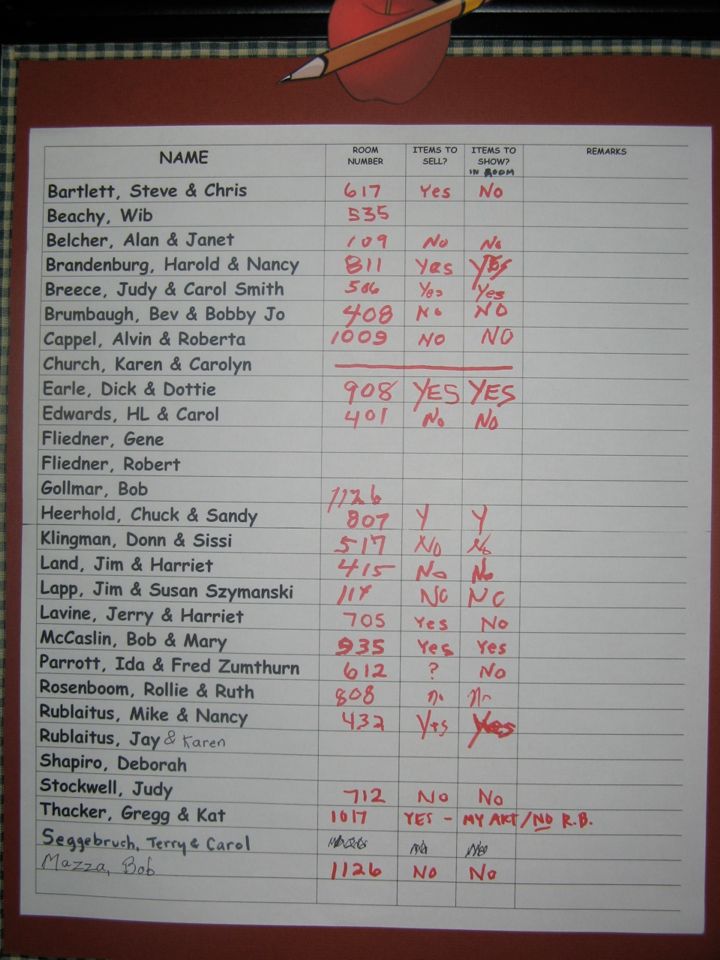 NAME ROOM NUMBER ITEMS TO SELL? ITEMS TO SHOW? IN ROOM REMARKS
Bartlett, Steve & Chris 617 Yes No
Beachy, Wib 535
Belcher, Alan & Janet 109 No No
Brandenburg, Harold & Nancy 811 Yes YES
Breece, Judy & Carol Smith 506 Yes Yes
Brumbaugh, Bev & Bobby Jo 408 No NO
Cappel, Alvin & Roberta 1009 NO NO
Church, Karen & Carolyn
Earle, Dick & Dottie 908 YES YES
Edwards, HL & Carol 401 No No
Fliedner, Gene
Fliedner, Robert
Gollmar, Bob 1126
Heerhold, Chuck & Sandy 807 Y Y
Klingman, Donn & Sissi 517 No No
Land, Jim & Harriet 415 No No
Lapp, Jim & Susan Szymanski NO NO
Lavine, Jerry & Harriet 705 Yes No
McCaslin, Bob & Mary 935 Yes Yes
Parrott, Ida & Fred Zumthurn 612 ? No
Rosenboom, Rollie & Ruth 808 no no
Rublaitus, Mike & Nancy 432 Yes Yes
Rublaitus, Jay & Karen
Shapiro, Deborah
Stockwell, Judy 712 No No
Thacker, Gregg & Kat 1017 YES - MY ART / NO R.B.
Seggebruch, Terry & Carol
Mazza, Bob 1126 No No